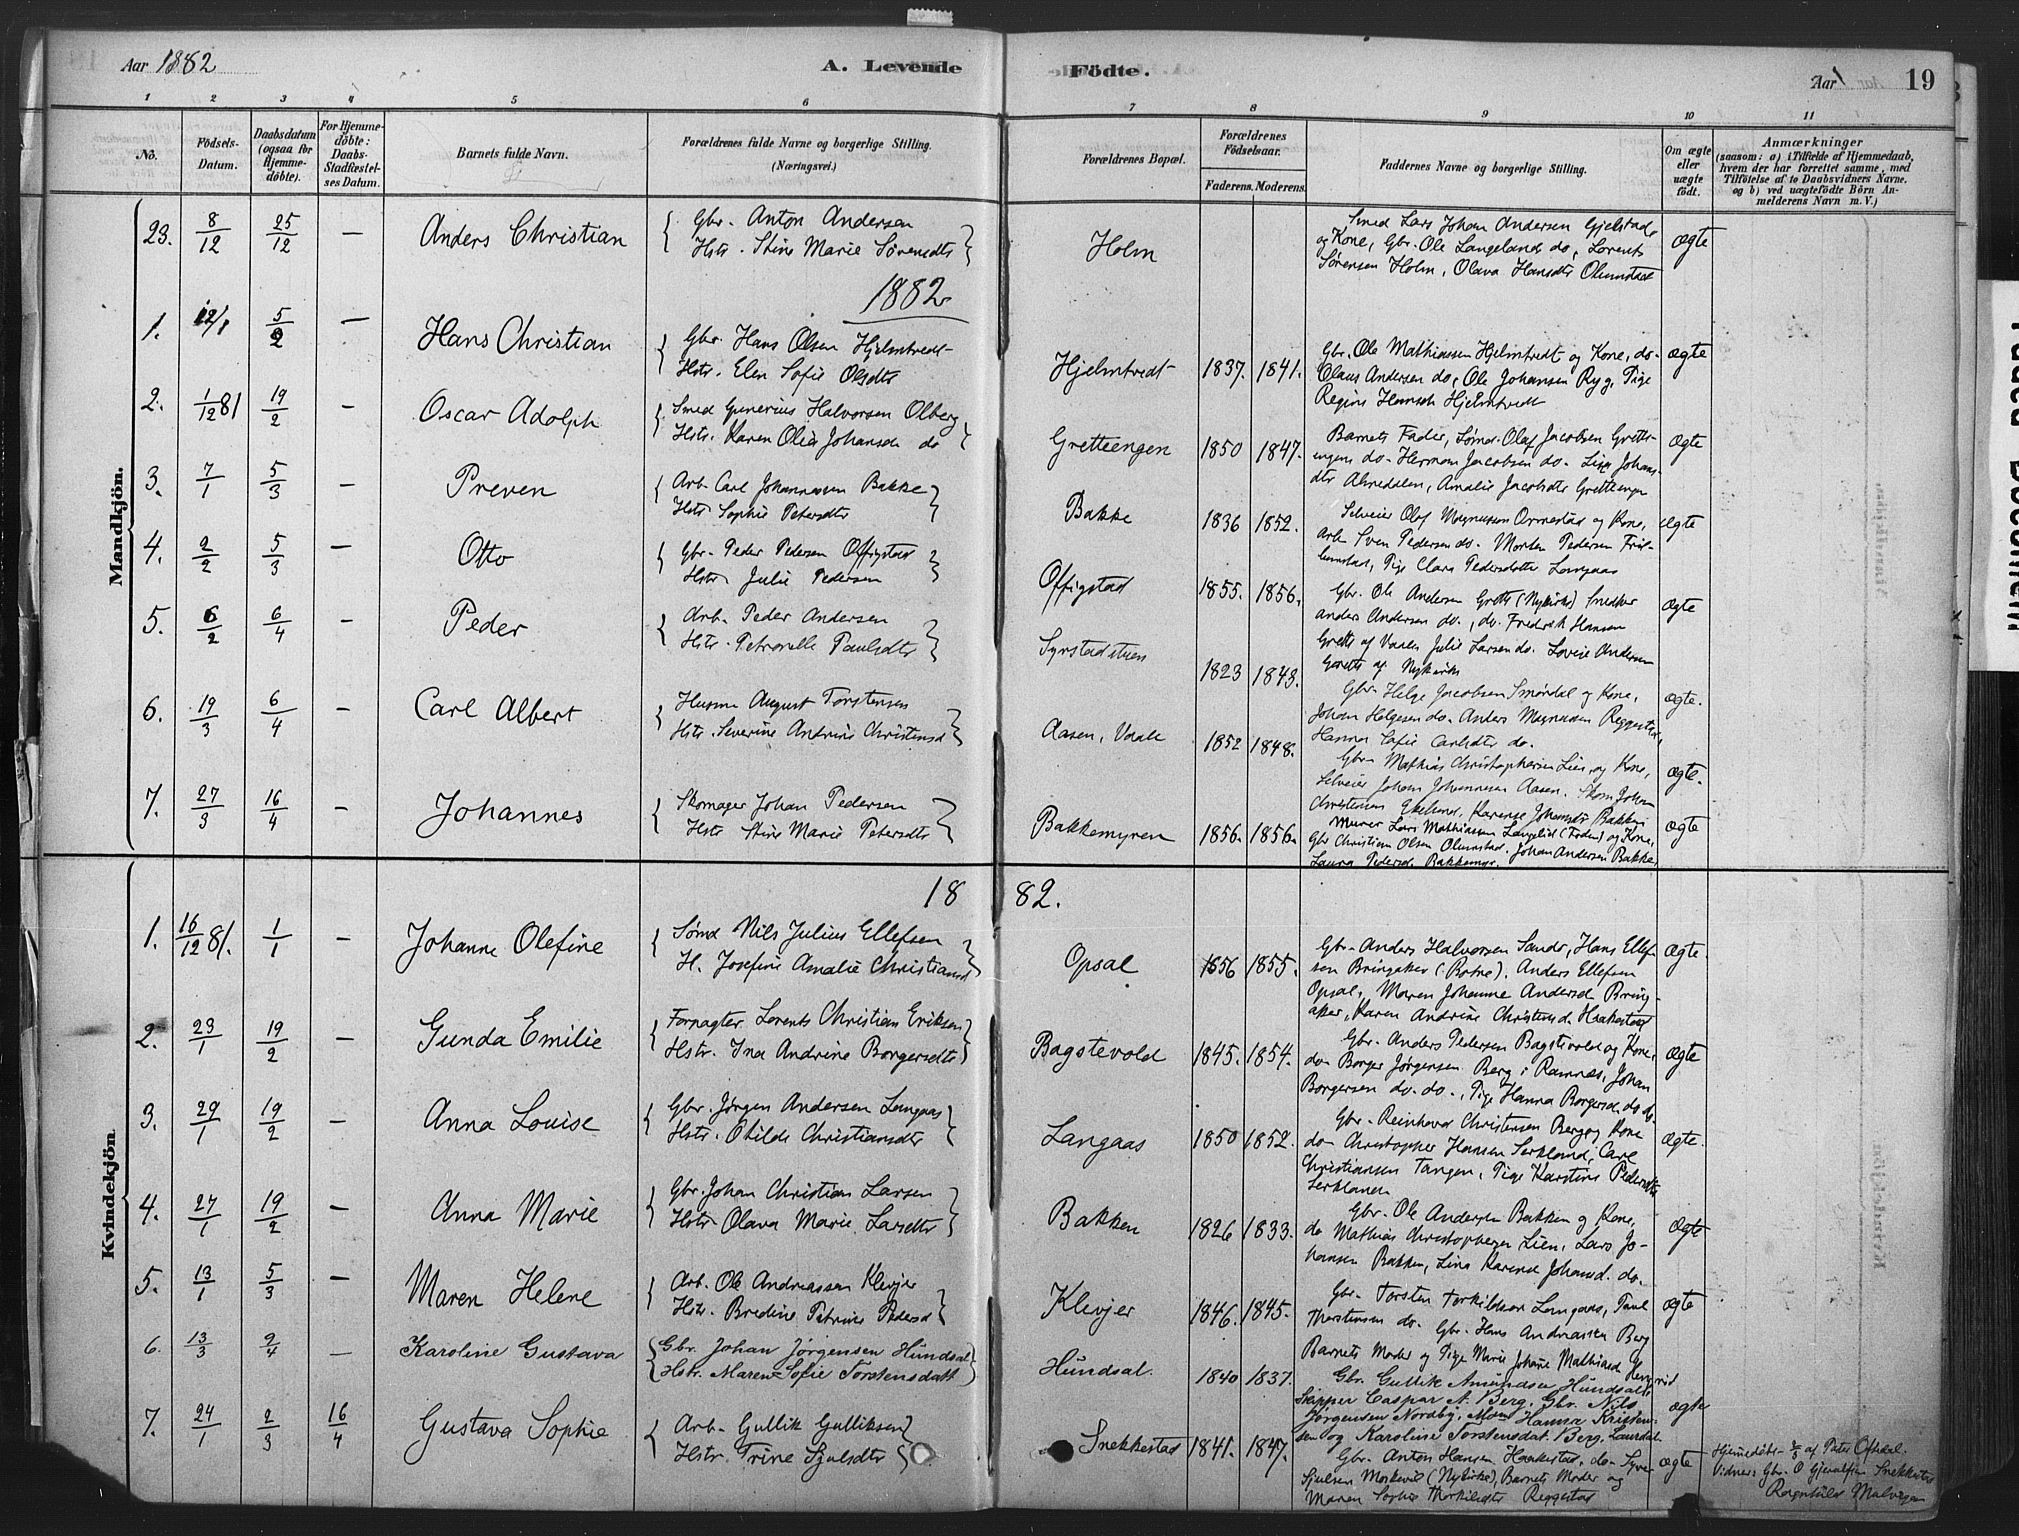 Aar 1882
A. Levende
Födte.
Aar 19
1 2 3 4 5 6 7 8 9 10 11
No.
Födsels-Datum.
Daabsdatum (ogsaa for Hjemme-döbte).
For Hjemme-döbte: Daabs-Stadfæstel-ses Datum.
Barnets fulde Navn.
Forældrenes fulde Navne og borgerlige Stilling. (Næringsvei.)
Forældrenes Bopæl.
Forældrenes Födselsaar.
Faderens. Moderens.
Faddernes Navne og borgerlige Stilling.
Om ægte eller uægte födt.
Anmærkninger
(saasom: a) i Tilfælde af Hjemmedaab, hvem der har forrettet samme, med Tilföielse af to Daabsvidners Navne. og b) ved uægtefödte Börn An-melderens Navn m. V.)
Mandkjön.
23. 8/12 25/12 — Anders Christian
Gbr. Anton Andersen
Hstr. Stine Marie Sørensdtr
Holm
Smed Lars Johan Andersen Gjelstad
og Kone, Gbr. Ole Langeland do, Lorents
Sørensen Holm, Olava Hansdtr Olumstad
ægte
1882
1. 12/1 5/2 — Hans Christian
Gbr. Hans Olsen Hjelmtvedt
Hstr. Elen Sofie Olsdtr
Hjelmtvedt 1837. 1841.
Gbr. Ole Mathiassen Hjelmtvedt og Kone, do
Claus Andersen do, Ole Johansen Ryg, Pige
Hjelmtvedt
ægte
2. 1/12 81 19/2 — Oscar Adolph
Smed Gunerius Halvorsen Olberg
Hstr. Karen Olea Johansdr do
Gretteengen 1850 1847.
Barnets Fader, Sømd. Olaf Jacobsen Grette-
engen do. Herman Jacobsen do. Johans-
dtr Amalie Jacobsdtr Gretteengen
ægte
3. 7/1 5/3 — Preven
Arb. Carl Johannesen Bakke
Hstr Sophie Petersdtr
Bakke 1836 1852.
Selveier Olaf Magnussen Ormestad og Kone,
Arb Sven Pedersen do. Morten Pedersen
Pige Clara Pedersdatter Langaas
ægte
4. 2/2 5/3 — Otto
Gbr. Peder Pedersen Offigstad
Hstr Julie Pedersen
Offigstad 1855. 1856.
Gbr. Ole Andersen Grette (Nykirke) Snedker
Anders Andersen do., do. Fredrik Hansen
Grette af Vaale, Julie Larsen do. Lovise Andersen
Grette af Nykirke
ægte
5. 6/2 6/4 — Peder
Arb. Peder Andersen
Hstr. Petronelle Paulsdtr
1823 1843.
Gbr. Helge Jacobsen Smørdal og Kone,
Johan Helgesen do. Anders Magnussen Reggestad,
Hanna Sofie Carlsdtr do.
ægte.
6. 19/3 6/4 — Carl Albert
Husm August Torstensen
Hstr. Severine Andrine Christensd
Aasen, Vaale 1852 1848.
Gbr. Mathias Christophersen Lien og Kone,
Selveier Johan Johannesen Aasen. Skom Johan
Christensen Karense Johansdtr Bakken
ægte.
7. 27/3 16/4 — Johannes
Skomager Johan Pedersen
Hstr Stine Marie Petersdtr
Bakkemyren 1856. 1856.
Murer Lars Mathiassen og Kone,
Gbr Christian Olsen Olumstad. Johan Andersen Bakke,
Laura Pedersd. Bakkemyr.
ægte
Kvindekjön
18 82.
1. 16/12 81. 1/1 — Johanne Olefine
Sømd Nils Julius Ellefsen
H. Josefine Amalie Christiansd
Opsal 1856 1855.
Gbr. Anders Halvorsen Sande, Hans Ellef-
sen Bringaker (Botne). Anders Ellefsen
Opsal, Maren Johanne Andersd. Bring-
aker, Karen Andrine Christensd. Haakestad
Ægte.
2. 23/1 19/2 — Gunda Emilie
Forpagter Lorents Christian Eriksen
Hstr. Ina Andrine Borgersdtr
Bagstevold 1845. 1854.
Gbr. Anders Pedersen Bagstevold og Kone,
do Borger Jørgensen Berg i Ramnes, Johan
Borgersen do. do., Pige Hanna Borgersd. do do.
ægte
3. 29/1 19/2 — Anna Louise
Gbr. Jørgen Andersen Langaas
Hstr. Otilde Christiansdtr
Langaas 1850 1852.
Gbr. Reinhard Christensen Berg og Kone
do Christopher Hansen Serkland, Carl
Christiansen Tangen, Pige Karstine Pedersdtr
Serkland
ægte.
4. 27/1 19/2 — Anna Marie
Gbr. Johan Christian Larsen
Hstr Olava Marie Larsdtr
Bakken 1826 1833.
Gbr. Ole Andersen Bakken og Kone,
do Mathias Christophersen Lien, Lars Jo-
hansen Bakken, Lina Karense Johansd. do.
Ægte
5. 13/1 5/3 — Maren Helene
Arb. Ole Andreassen Klevjer
Hstr. Bredine Petrine Pedersd
Klevjer 1846. 1845.
Gbr. Torsten Torkildsen Langaas, Paul
Thorstensen do. Gbr. Hans Andreassen Berg
Barnets Moder og Pige Marie Johanne Mathiasd
ægte
6. 13/3 2/4 — Karoline Gustava
Gbr. Johan Jørgensen Hundsal
Hstr. Maren Sofie Torstensdatt
Hundsal. 1840 1837.
Gbr. Gullik Amundsen Hundsal,
Skipper Caspar A. Berg. Gbr. Nils
Jørgensen Nordby, Mad. Hanna Kristen-
sen og Karoline Torstensdat. Berg.
ægte
7. 24/1 2/3 16/4 Gustava Sophie
Arb. Gullik Gulliksen
Hstr. Trine Sjulsdtr
Snekkestad 1841. 1847.
Gbr. Anton Hansen Haakestad, do. Syver
Sjulsen (Nykirke), Barnets Moder og
Maren Sophie Thorkildsdtr Reggestad
ægte
Hjemmedöbt 2/3 af Peter
Vidner: Gbr. O Snekkestad
Ragnhild